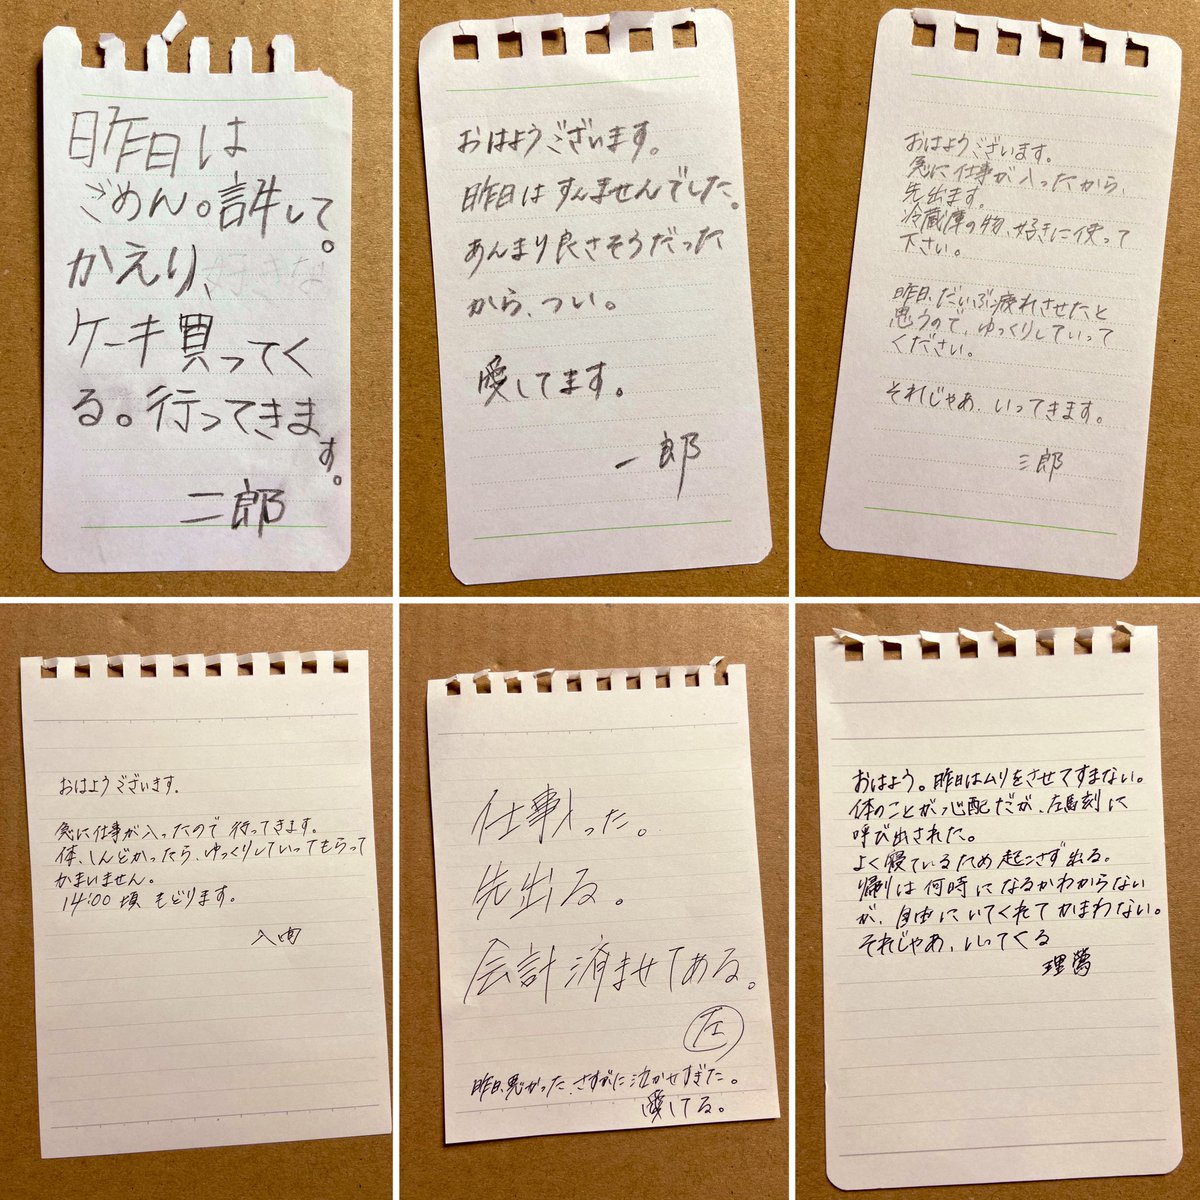 昨日は
ごめん。許して。
かえり、
ケーキ買ってく
る。行ってきます。
二郎
おはようございます。
昨日はすんませんでした。
あんまり良さそうだった
から、つい。
愛してます。
一郎
おはようございます。
急に仕事が入ったから、
先出ます。
冷蔵庫の物、好きに使って
下さい。
昨日、だいぶ疲れさせたと
思うので、ゆっくりしていって
ください。
それじゃあ、いってきます。
三郎
おはようございます。
急に仕事が入ったので行ってきます。
体、しんどかったら、ゆっくりしていってもらって
かまいません。
14:00頃もどります。
入間
仕事入った。
先出る。
会計済ませてある。
左
昨日、悪かった。さすがに泣かせすぎた。
愛してる。
おはよう。昨日はムリをさせてすまない。
体のことが心配だが、左馬刻に
呼び出された。
よく寝ているため起こさず出る。
帰りは何時になるかわからない
が、自由にいてくれてかまわない。
それじゃあ、いってくる
理鶯